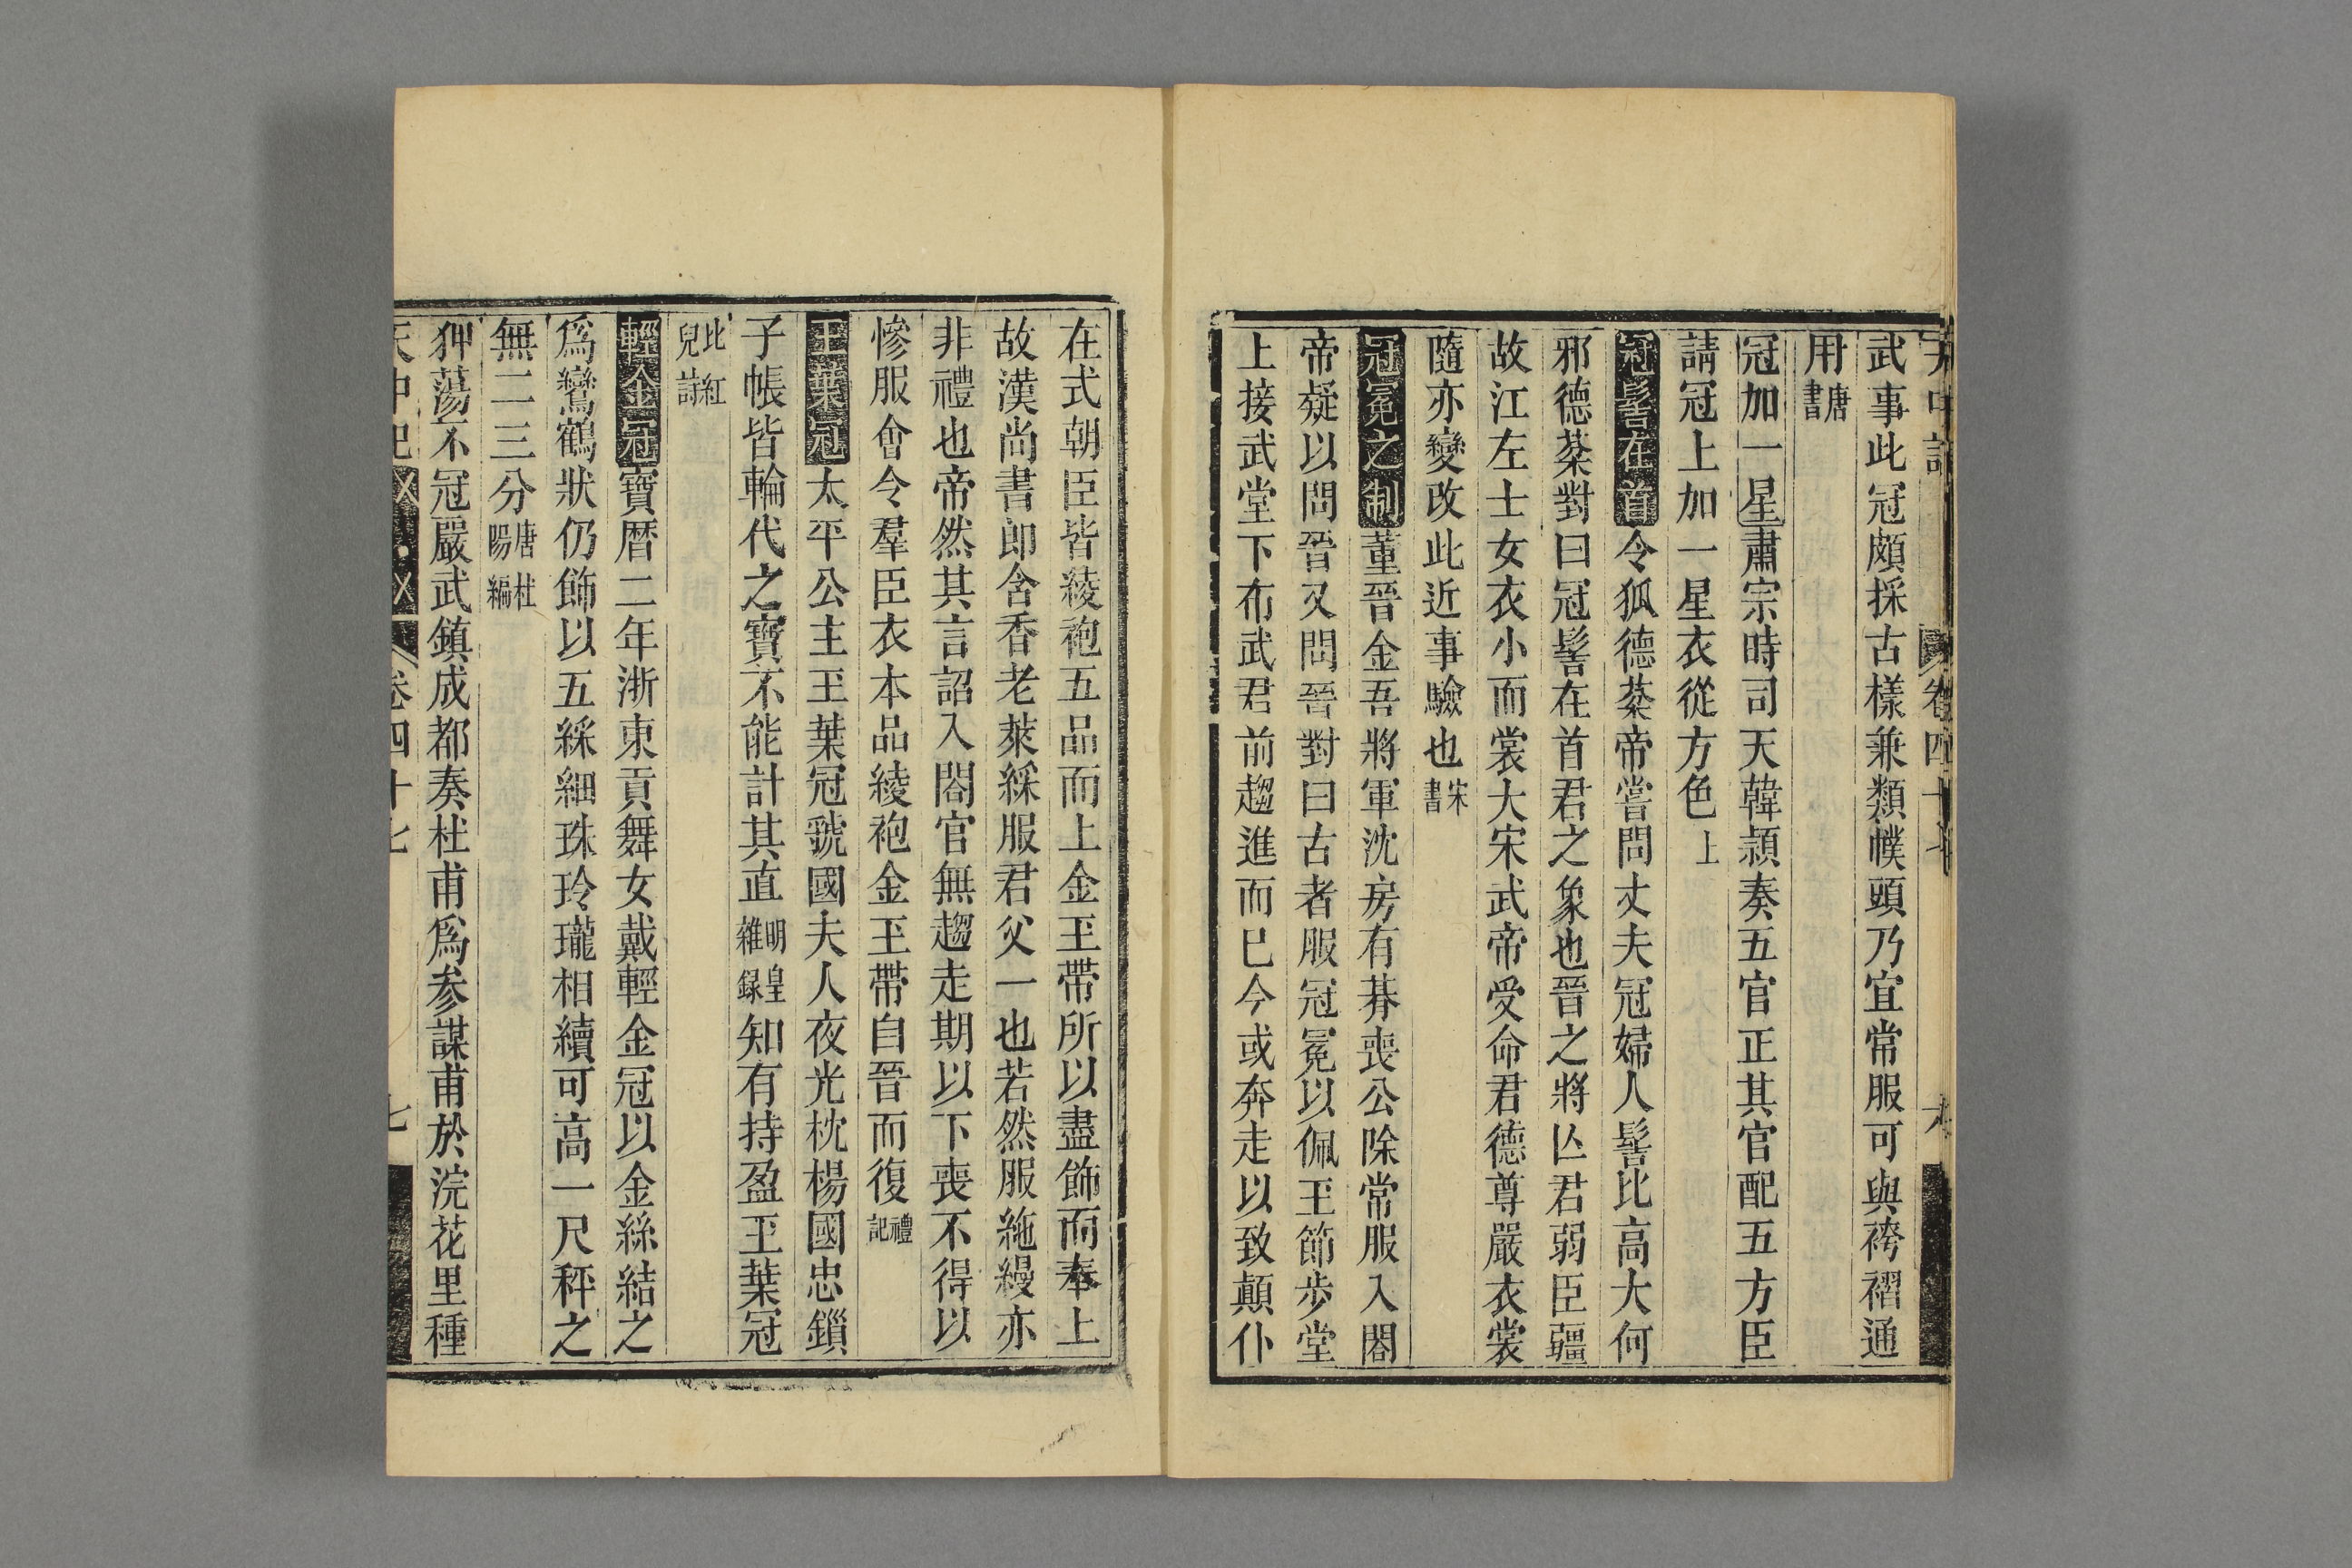 天中記 卷四十七 六
武事此冠頗採古樣兼類幞頭乃宜常服可與袴褶通
用唐書
冠加一星肅宗時司天韓頴奏五官正其官配五方臣
請冠上加一星衣從方色上
冠髻在首令狐德棻帝嘗問丈夫冠婦人髻比高大何
邪德棻對曰冠髻在首君之象也晉之將亾君弱臣疆
故江左士女衣小而裳大宋武帝受命君德尊嚴衣裳
隨亦變改此近事驗也宋書
冠冕之制董晉金吾將軍沈房有朞喪公除常服入閤
帝疑以問晉又問晉對曰古者服冠冕以佩玉節步堂
上接武堂下布武君前趨進而已今或奔走以致顛仆
在式朝臣皆綾袍五品而上金玉帶所以盡飾而奉上
故漢尚書郎含香老萊綵服君父一也若然服絁縵亦
非禮也帝然其言詔入閤官無趨走期以下喪不得以
慘服會令羣臣衣本品綾袍金玉帶自晉而復禮記
玉葉冠太平公主玉葉冠虢國夫人夜光枕楊國忠鎻
子帳皆輪代之寶不能計其直明皇雜録知有持盈玉葉冠
比紅兒詩
輕金冠寶曆二年浙東貢舞女戴輕金冠以金絲結之
爲鸞鶴狀仍飾以五綵細珠玲瓏相續可高一尺秤之
無二三分唐杜陽編
狎蕩不冠嚴武鎮成都奏杜甫爲參謀甫於浣花里種
天中記 卷四十七 七